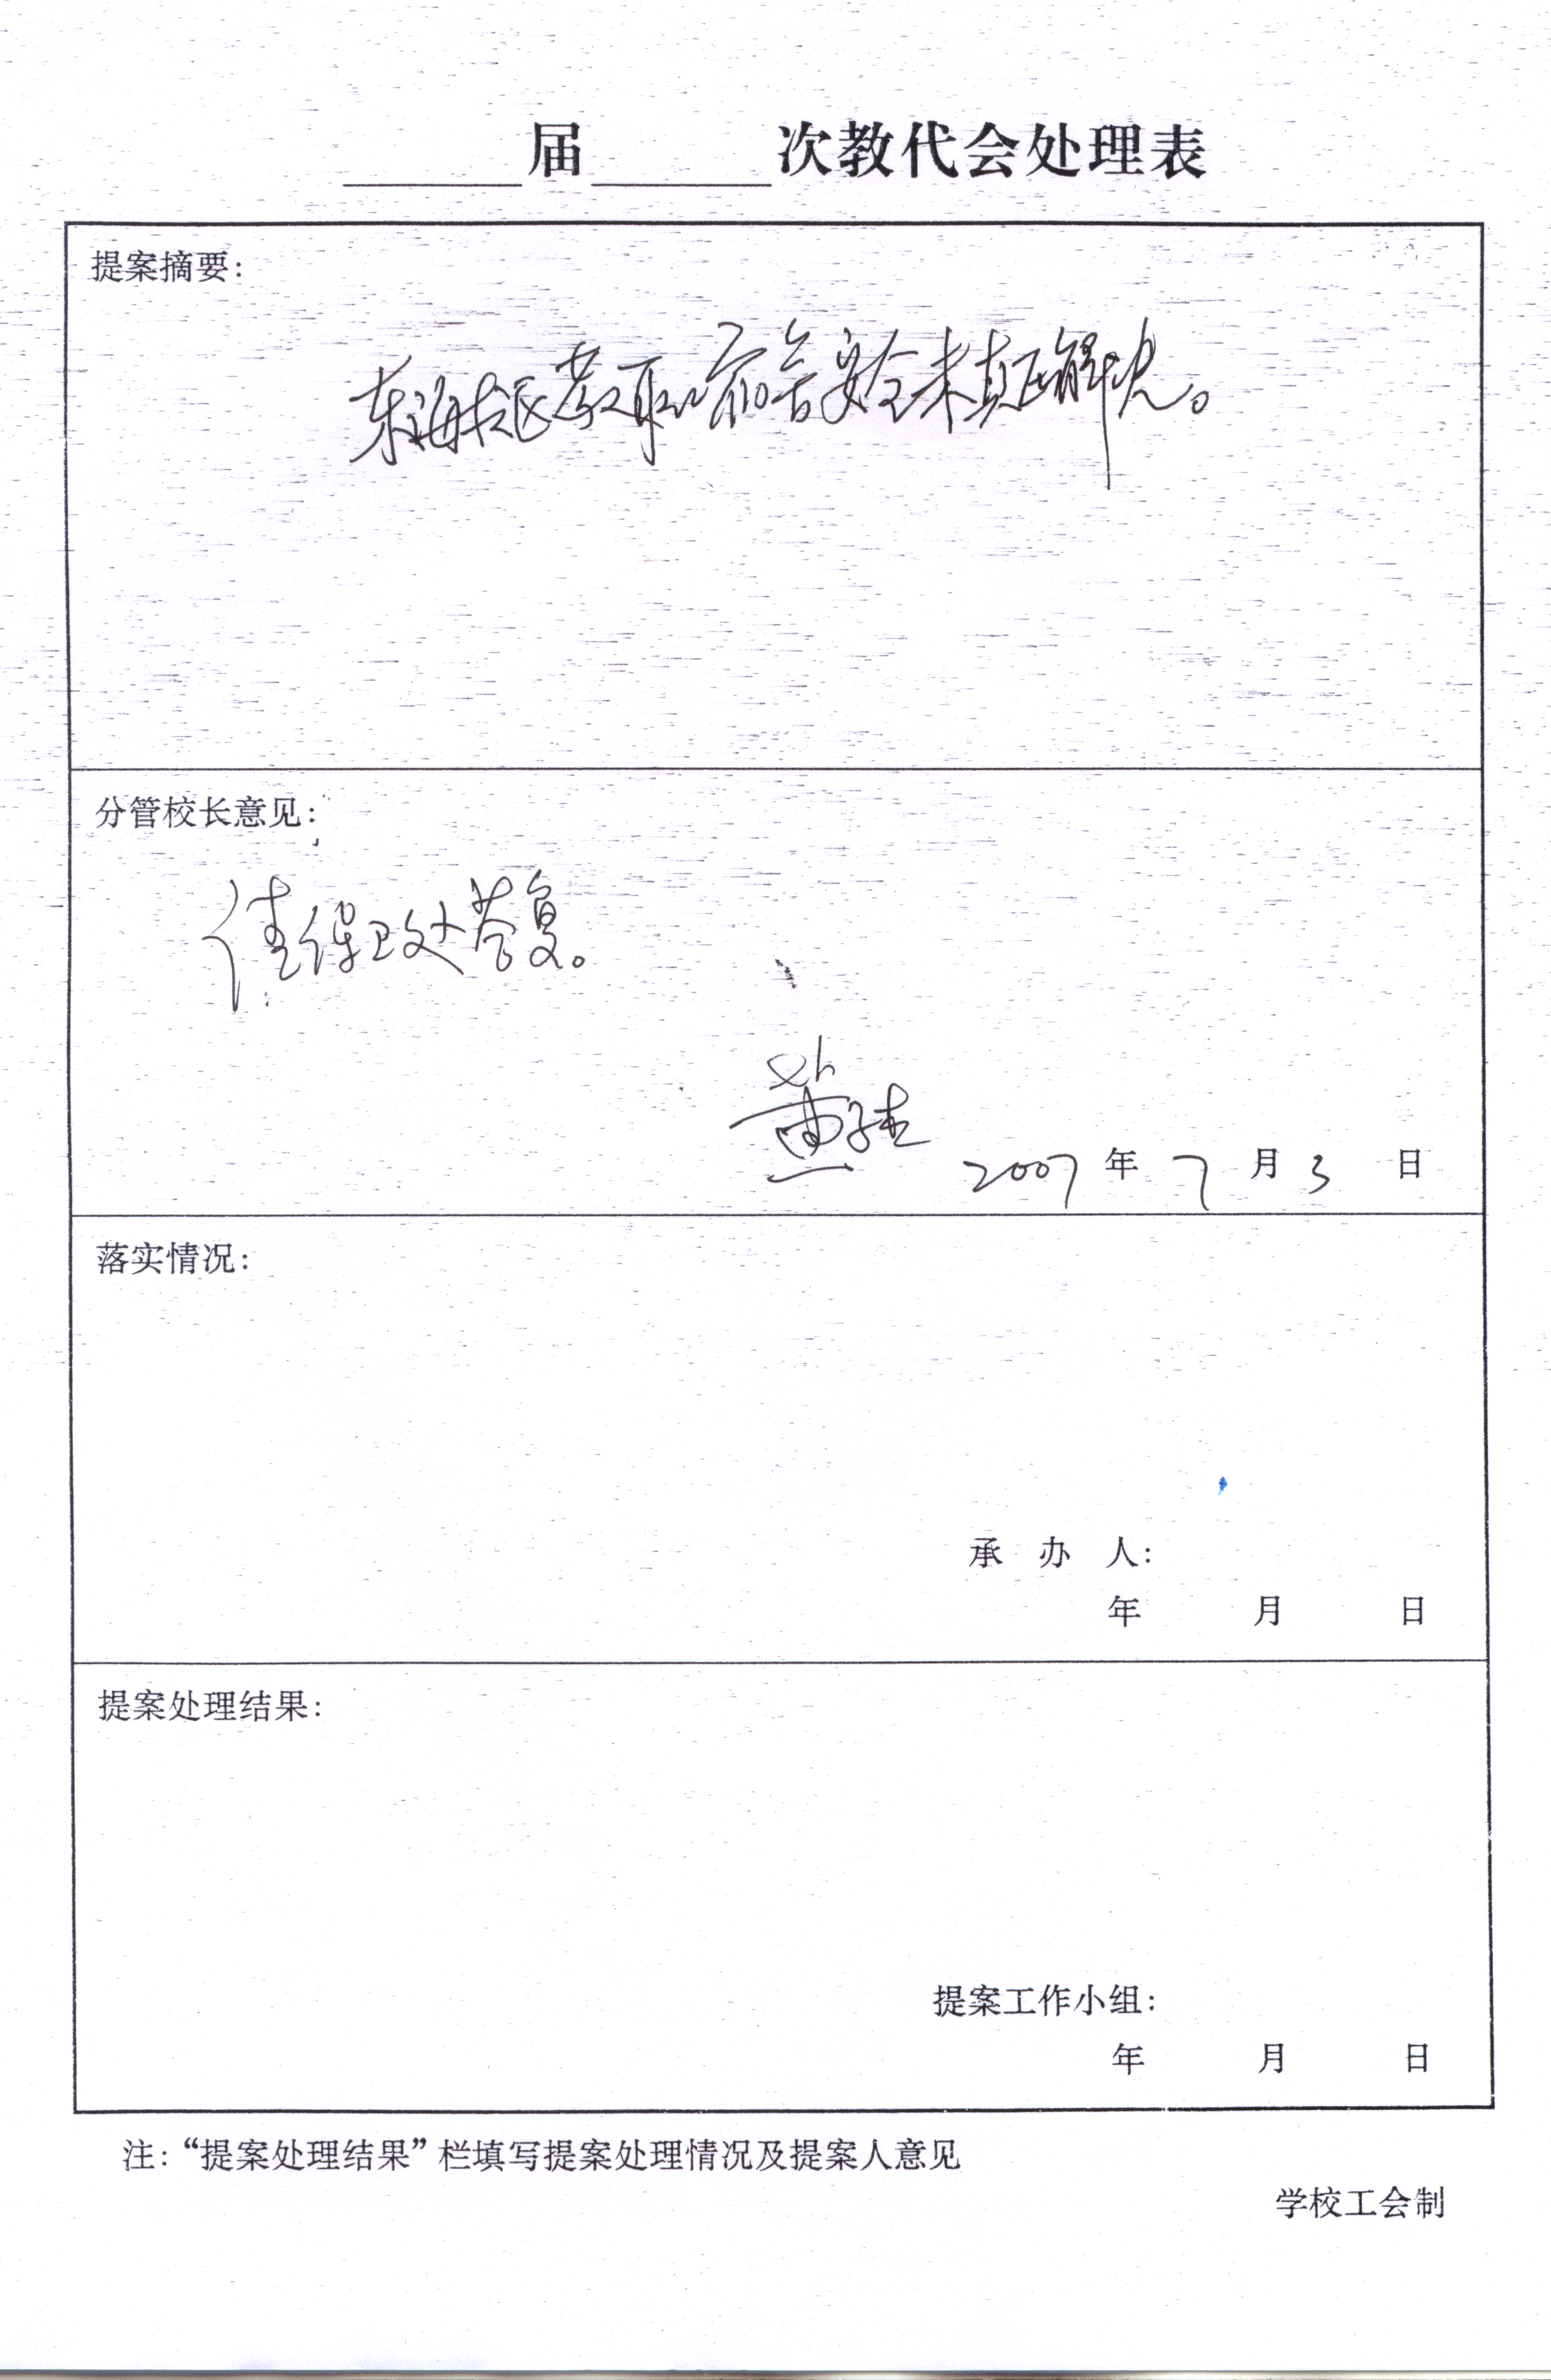 届 次教代会处理表
提案摘要:
东海校区教职工宿舍安全未真正解决。
分管校长意见:
请保卫处答复。
2007 年 7 月 3 日
落实情况:
承 办 人:
年 月 日
提案处理结果:
提案工作小组:
年 月 日
注:“提案处理结果”栏填写提案处理情况及提案人意见
学校工会制